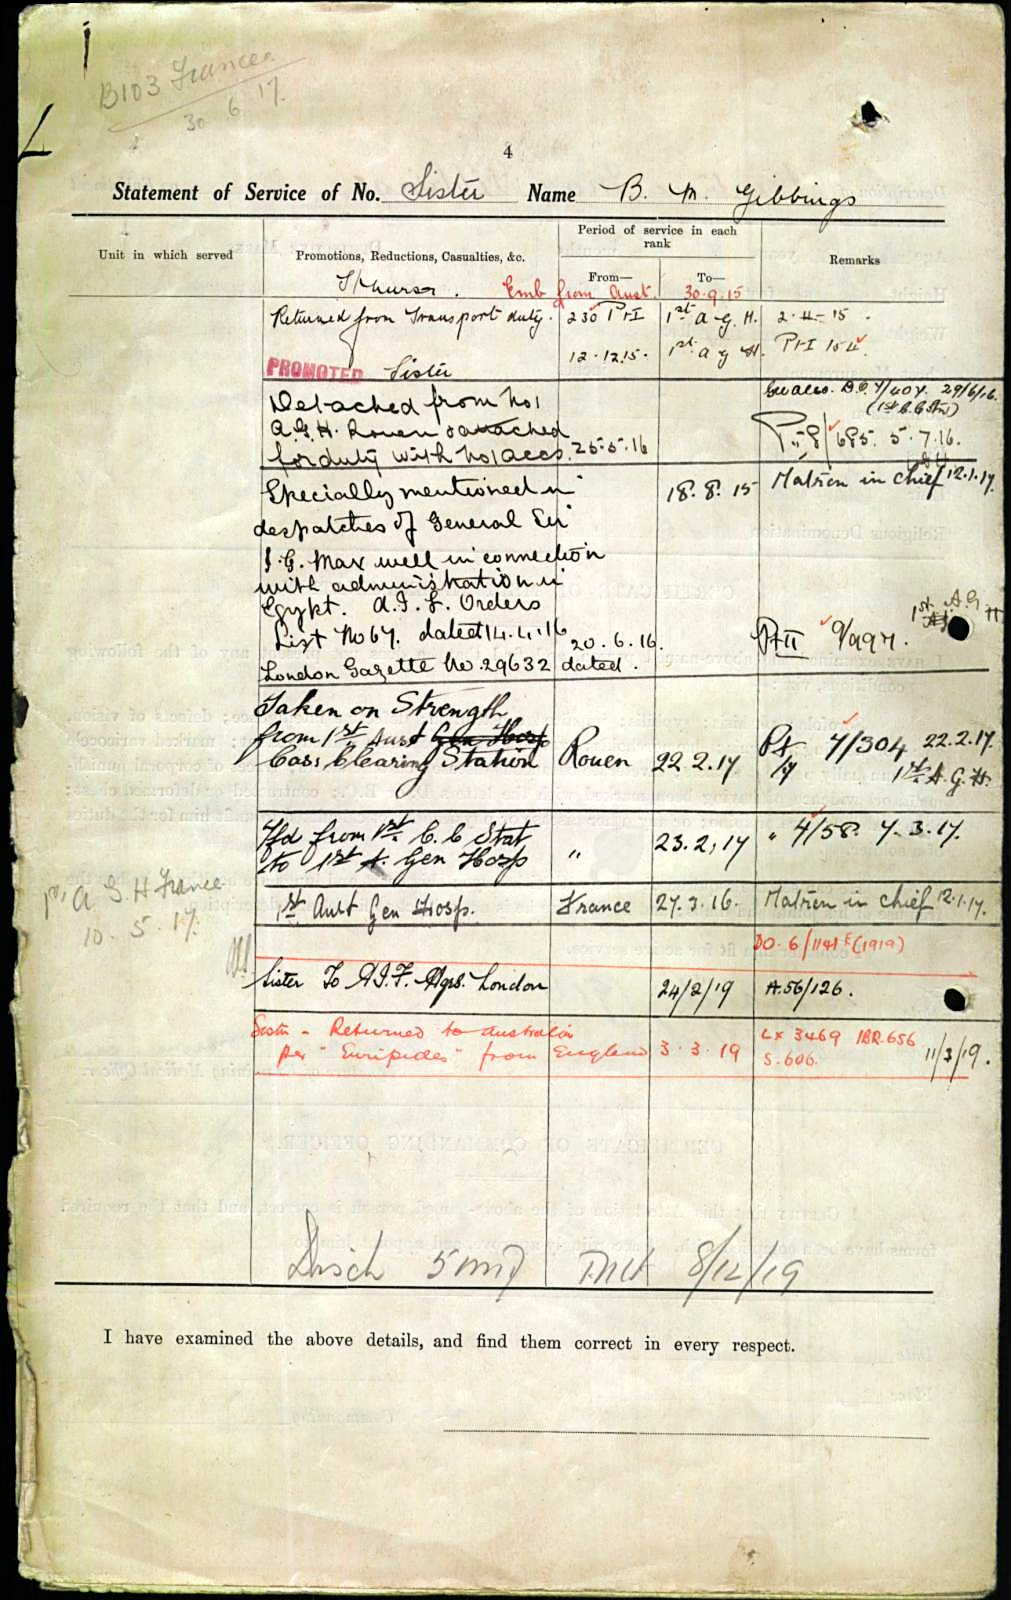 B103 France
30 6 17.
4
Statement of Service of No. Sister Name B. M. Gibbings
Unit in which served
Promotions, Reductions, Casualties, &c.
Period of service in each rank
From—
To—
Remarks
S/Nurse. Emb from Aust. 30.9.15
Returned from Transport duty. 230 Pt I 1st A.G.H. 2.11.15.
12.12.15. 1st A G H. Pt I 154
PROMOTED Sister
Detached from No1
A.G.H. Rouen & attached
for duty with No1 ACCS. 25.5.16
29/6/16.
685. 5.7.16.
Specially mentioned in 18.8.15 Matron in chief 12.1.17.
despatches of General Sir
J.G. Maxwell in connection
with administration in
Egypt. A.I.F. Orders
List No 67. dated 14.4.16
London Gazette No. 29632 dated. 20.6.16.
Pt II 9/997. 1st A.G H
Taken on Strength
from 1st Aust Gen Hosp
Cass Clearing Station Rouen 22.2.17 4/304 22.2.17.
1st A.G.H.
Tfd from 1st C.C Stat
to 1st A. Gen Hosp " 23.2.17 " 4/58. 7.3.17.
1st A G H France
10.5.17.
1st Aust Gen Hosp. France 27.3.16. Matron in chief 12.1.17.
DO. 6/1141 (1919)
Sister To A.I.F. Hqrs. London 24/2/19 A.56/126.
Sister - Returned to Australia
per "Euripides" from England 3.3.19 LX 3469 IBR.656
S.606. 11/3/19.
Disch 5 MD 8/12/19
I have examined the above details, and find them correct in every respect.